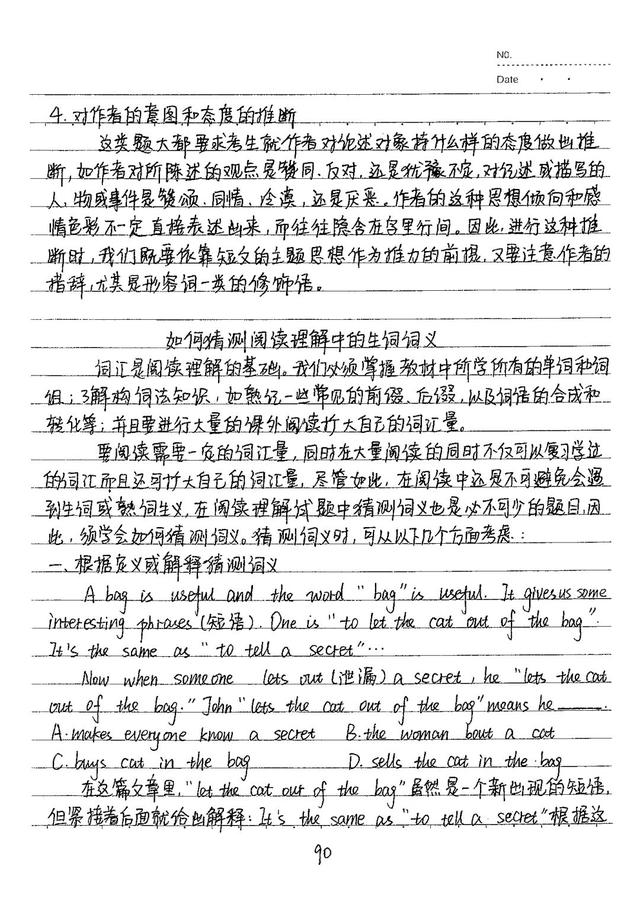 NO.
Date
4.对作者的意图和态度的推断
这类题大都要求考生就作者对论述对象持什么样的态度做出推
断,如作者对所陈述的观点是赞同、反对,还是犹豫不定,对记述或描写的
人、物或事件是赞颂、同情、冷漠,还是厌恶。作者的这种思想倾向和感
情色彩不一定直接表述出来,而往往隐含在字里行间。因此,进行这种推
断时,我们既要依靠短文的主题思想作为推力的前提,又要注意作者的
措辞,尤其是形容词一类的修饰语。
如何猜测阅读理解中的生词词义
词汇是阅读理解的基础。我们必须掌握教材中所学所有的单词和词
组;了解构词法知识,如熟记一些常见的前缀、后缀,以及词语的合成和
转化等;并且要进行大量的课外阅读扩大自己的词汇量。
要阅读需要一定的词汇量,同时在大量阅读的同时不仅可以复习学过
的词汇而且还可扩大自己的词汇量,尽管如此,在阅读中还是不可避免会遇
到生词或熟词生义,在阅读理解试题中猜测词义也是必不可少的题目,因
此,须学会如何猜测词义。猜测词义时,可从以下几个方面考虑:
一、根据定义或解释猜测词义
A bag is useful and the word "bag" is useful. It gives us some
interesting phrases(短语). One is "to let the cat out of the bag".
It's the same as "to tell a secret"…
Now when someone lets out(泄漏) a secret, he "lets the cat
out of the bag." John "lets the cat out of the bag" means he ____.
A. makes everyone know a secret B. the woman bout a cat
C. buys cat in the bag D. sells the cat in the bag
在这篇文章里,"let the cat out of the bag"虽然是一个新出现的短语,
但紧接着后面就给出解释:It's the same as "to tell a secret"根据这
90